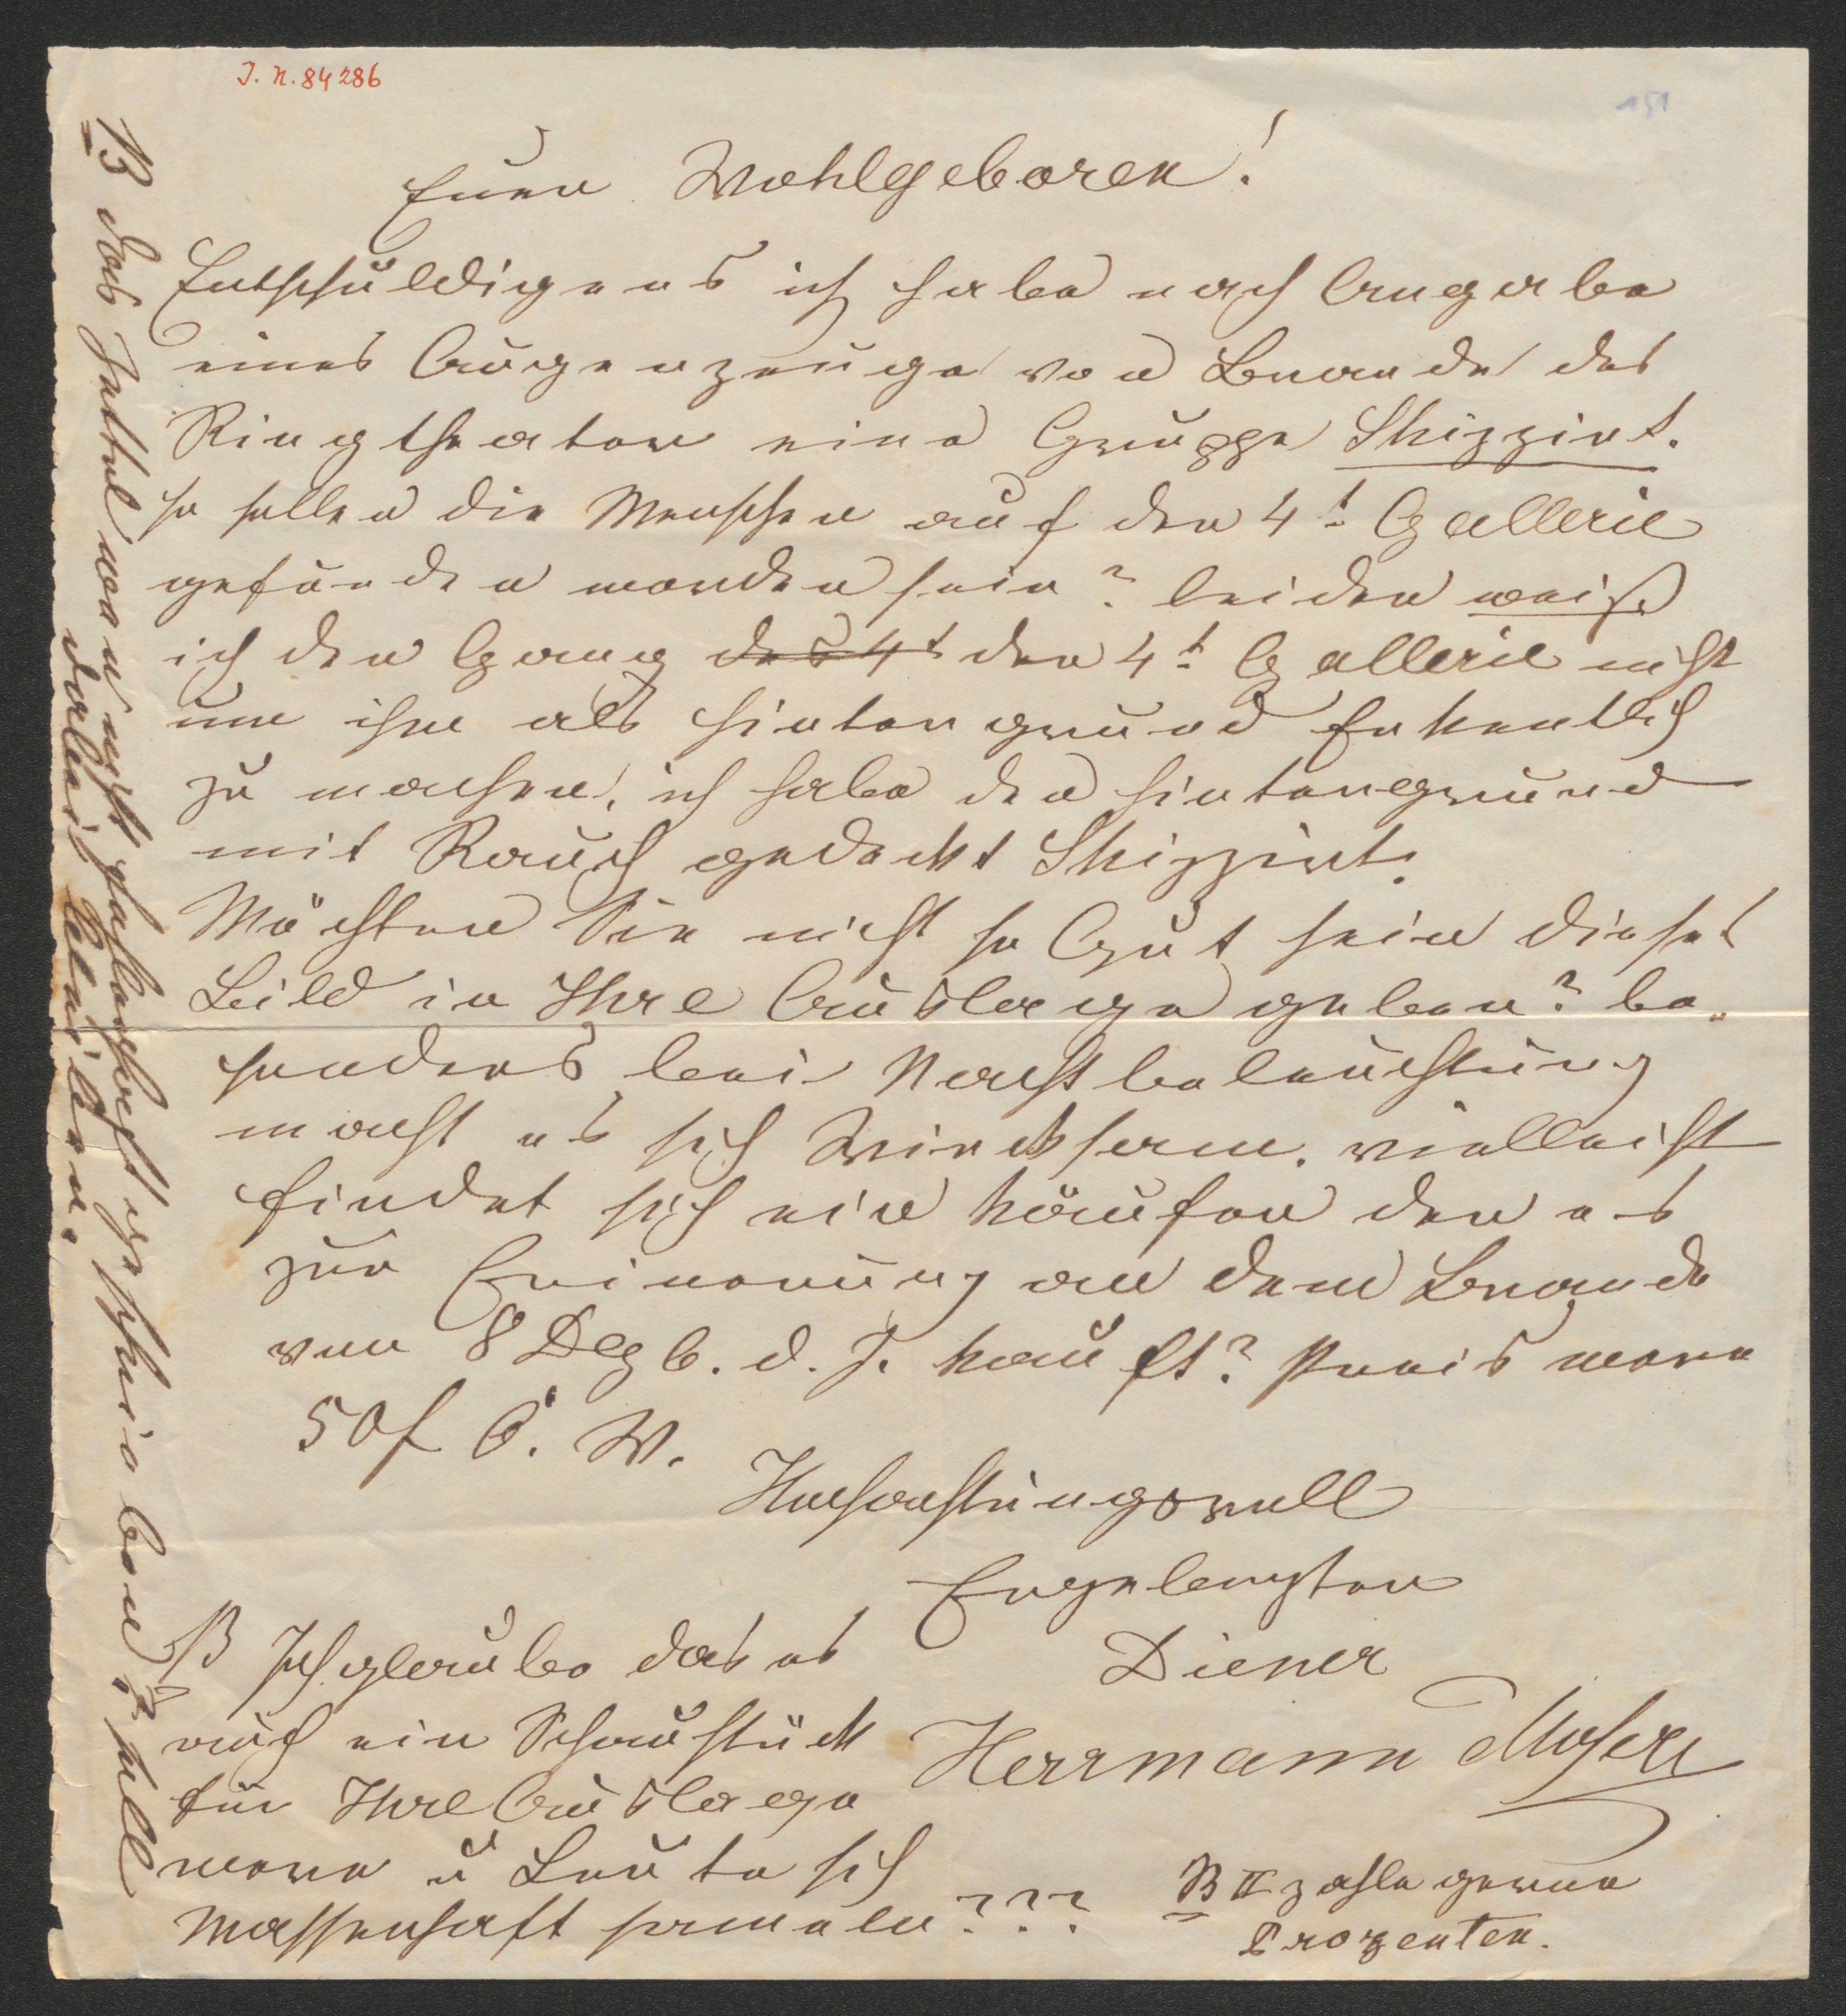 I. N. 84286
151
Euer Wohlgeboren!
Entschuldigens ich habe nach Angabe
eines Augenzeuge von Brande des
Ringtheater eine Gruppe Skizzirt.
so sollen die Menschen auf der 4t Gallerie
gefunden worden sein? leider weiß
ich den Gang des 4t der 4t Gallerie nicht
um ihn als Hintergrund Erkentlich
zu machen, ich habe den Hintergrund
mit Rauch gedeckt Skizzirt.
Möchten Sie nicht so Gut sein dieses
Bild in Ihre Auslage geben? be„
sonders bei Nachtbeleuchtung
macht es sich Wircksam. vielleicht
findet sich ein Käufer der es
zur Erinerung an dem Brande
vom 8 Dezb. d. J. kauft? Preis were
50f Ö. W.
Hochachtungsvoll
Ergebenster
Diener
Herrmann Moser
NB Ich glaube das es
auch ein Schaustück
für Ihre Auslage
were u Leute sich
Massenhaft sameln???
NB II zahle gerne
Prozenten.
NB das Zettel wan nicht fehlerhaft geschrieben? soll
dabei bleiben.